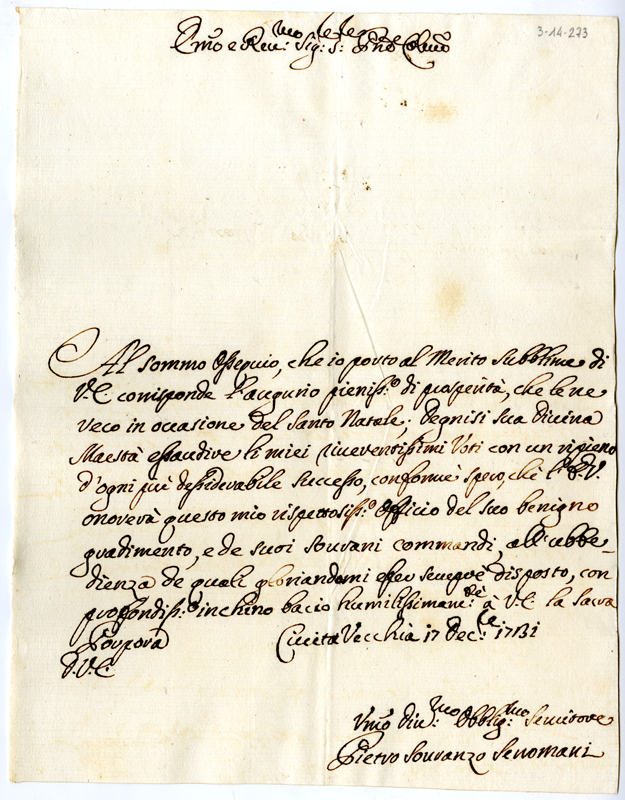 3-14-273
Em̃o e Reu:mo Sig:r S:r Pñe Colm̃o
Al sommo Osseguio, che io porto al Merito Subblime di
V.E. corrisponde l'augurio pieniss:o di prosperità, che le ne
reco in occasione del Santo Natale; Degnisi sua Divina
Maestà essaudire li miei riverentissimi Voti con un ripieno
d'ogni più dessiderabile successo, conforme spero, che l'E.V.
onorerà questo mio rispettosiss:o Officio del suo benigno
gradimento, e de suoi sourani commandi, all'ubbe-
dienza de quali gloriandomi esser sempre disposto, con
profondiss:o inchino bacio humilissimam:te à V.E. la Sacra
Porpora Civita Vecchia 17 Dec:bre 1731
D.V.E.
Um̃o div:mo Obblig:mo Servitore
Pietro Souranzo Senomani